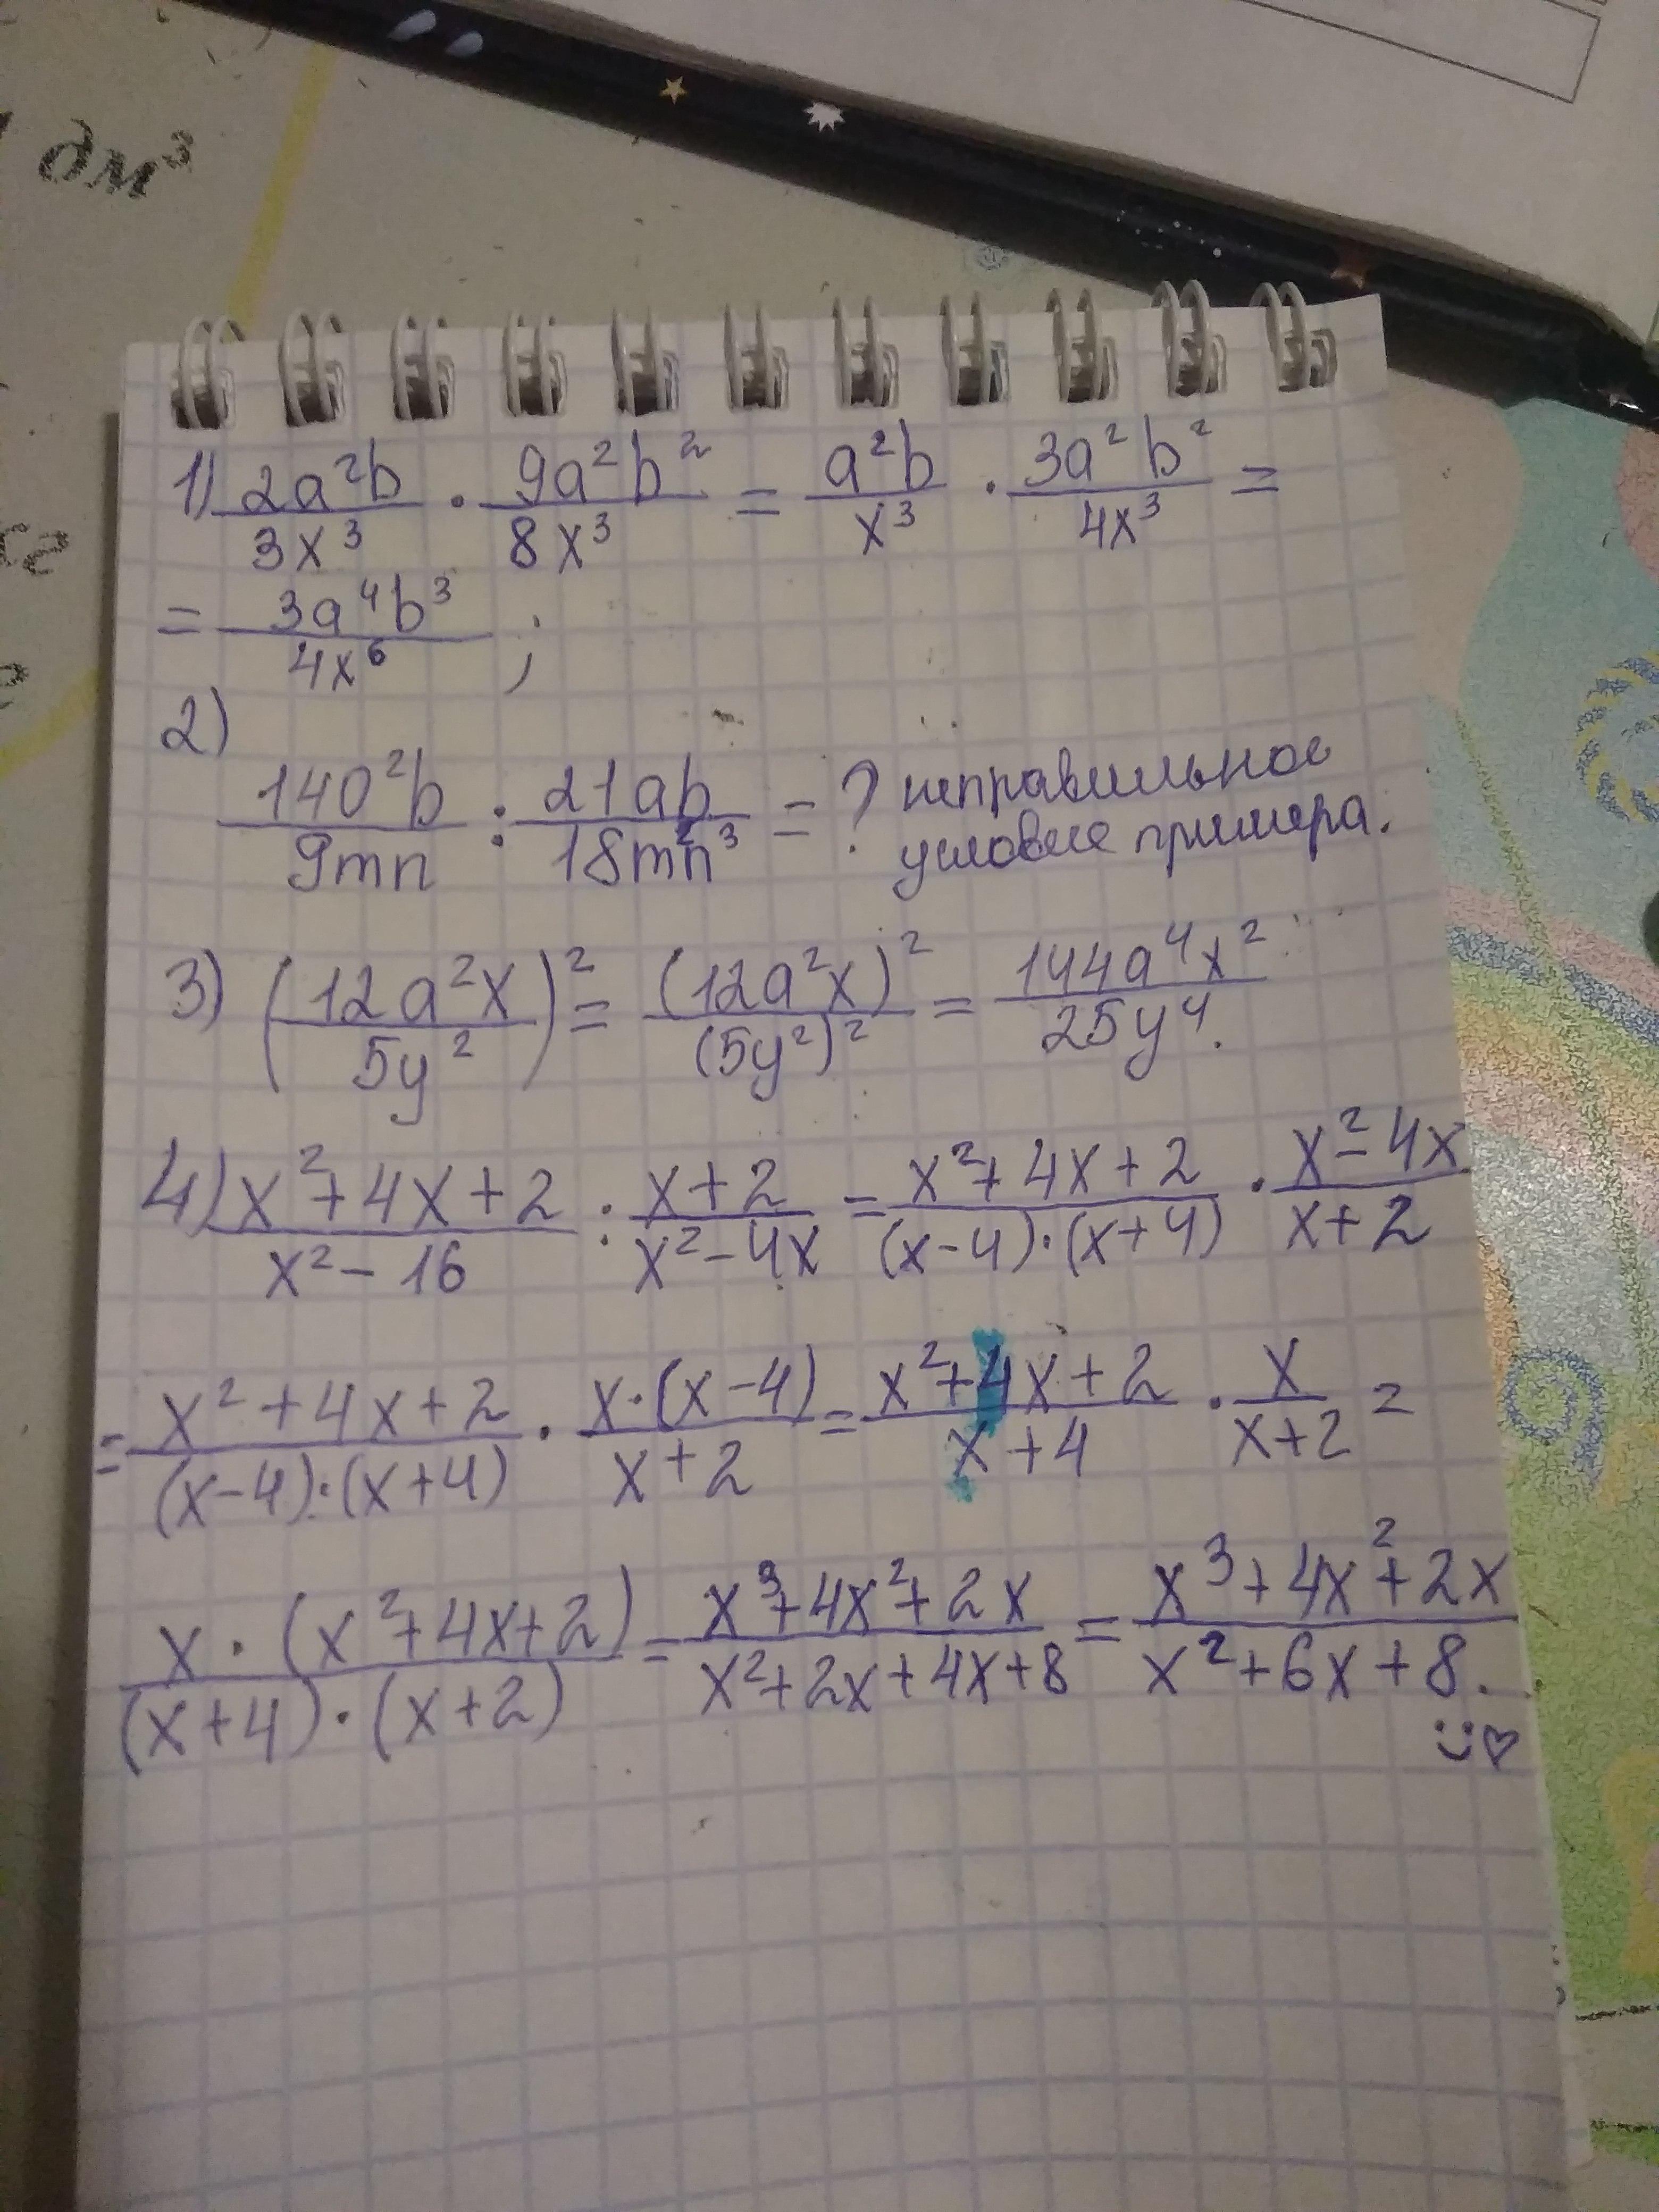 дм³
1) 2a²b/3x³ · 9a²b²/8x³ = a²b/x³ · 3a²b²/4x³ =
= 3a⁴b³/4x⁶ ;
2)
140²b/9mn : 21ab/18m²n³ = ? неправильное
условие примера.
3) (12a²x/5y²)² = (12a²x)²/(5y²)² = 144a⁴x²/25y⁴.
4) x²+4x+2/x²-16 : x+2/x²-4x = x²+4x+2/(x-4)·(x+4) · x²-4x/x+2
= x²+4x+2/(x-4)·(x+4) · x·(x-4)/x+2 = x²+4x+2/x+4 · x/x+2 =
x·(x²+4x+2)/(x+4)·(x+2) = x³+4x²+2x/x²+2x+4x+8 = x³+4x²+2x/x²+6x+8.